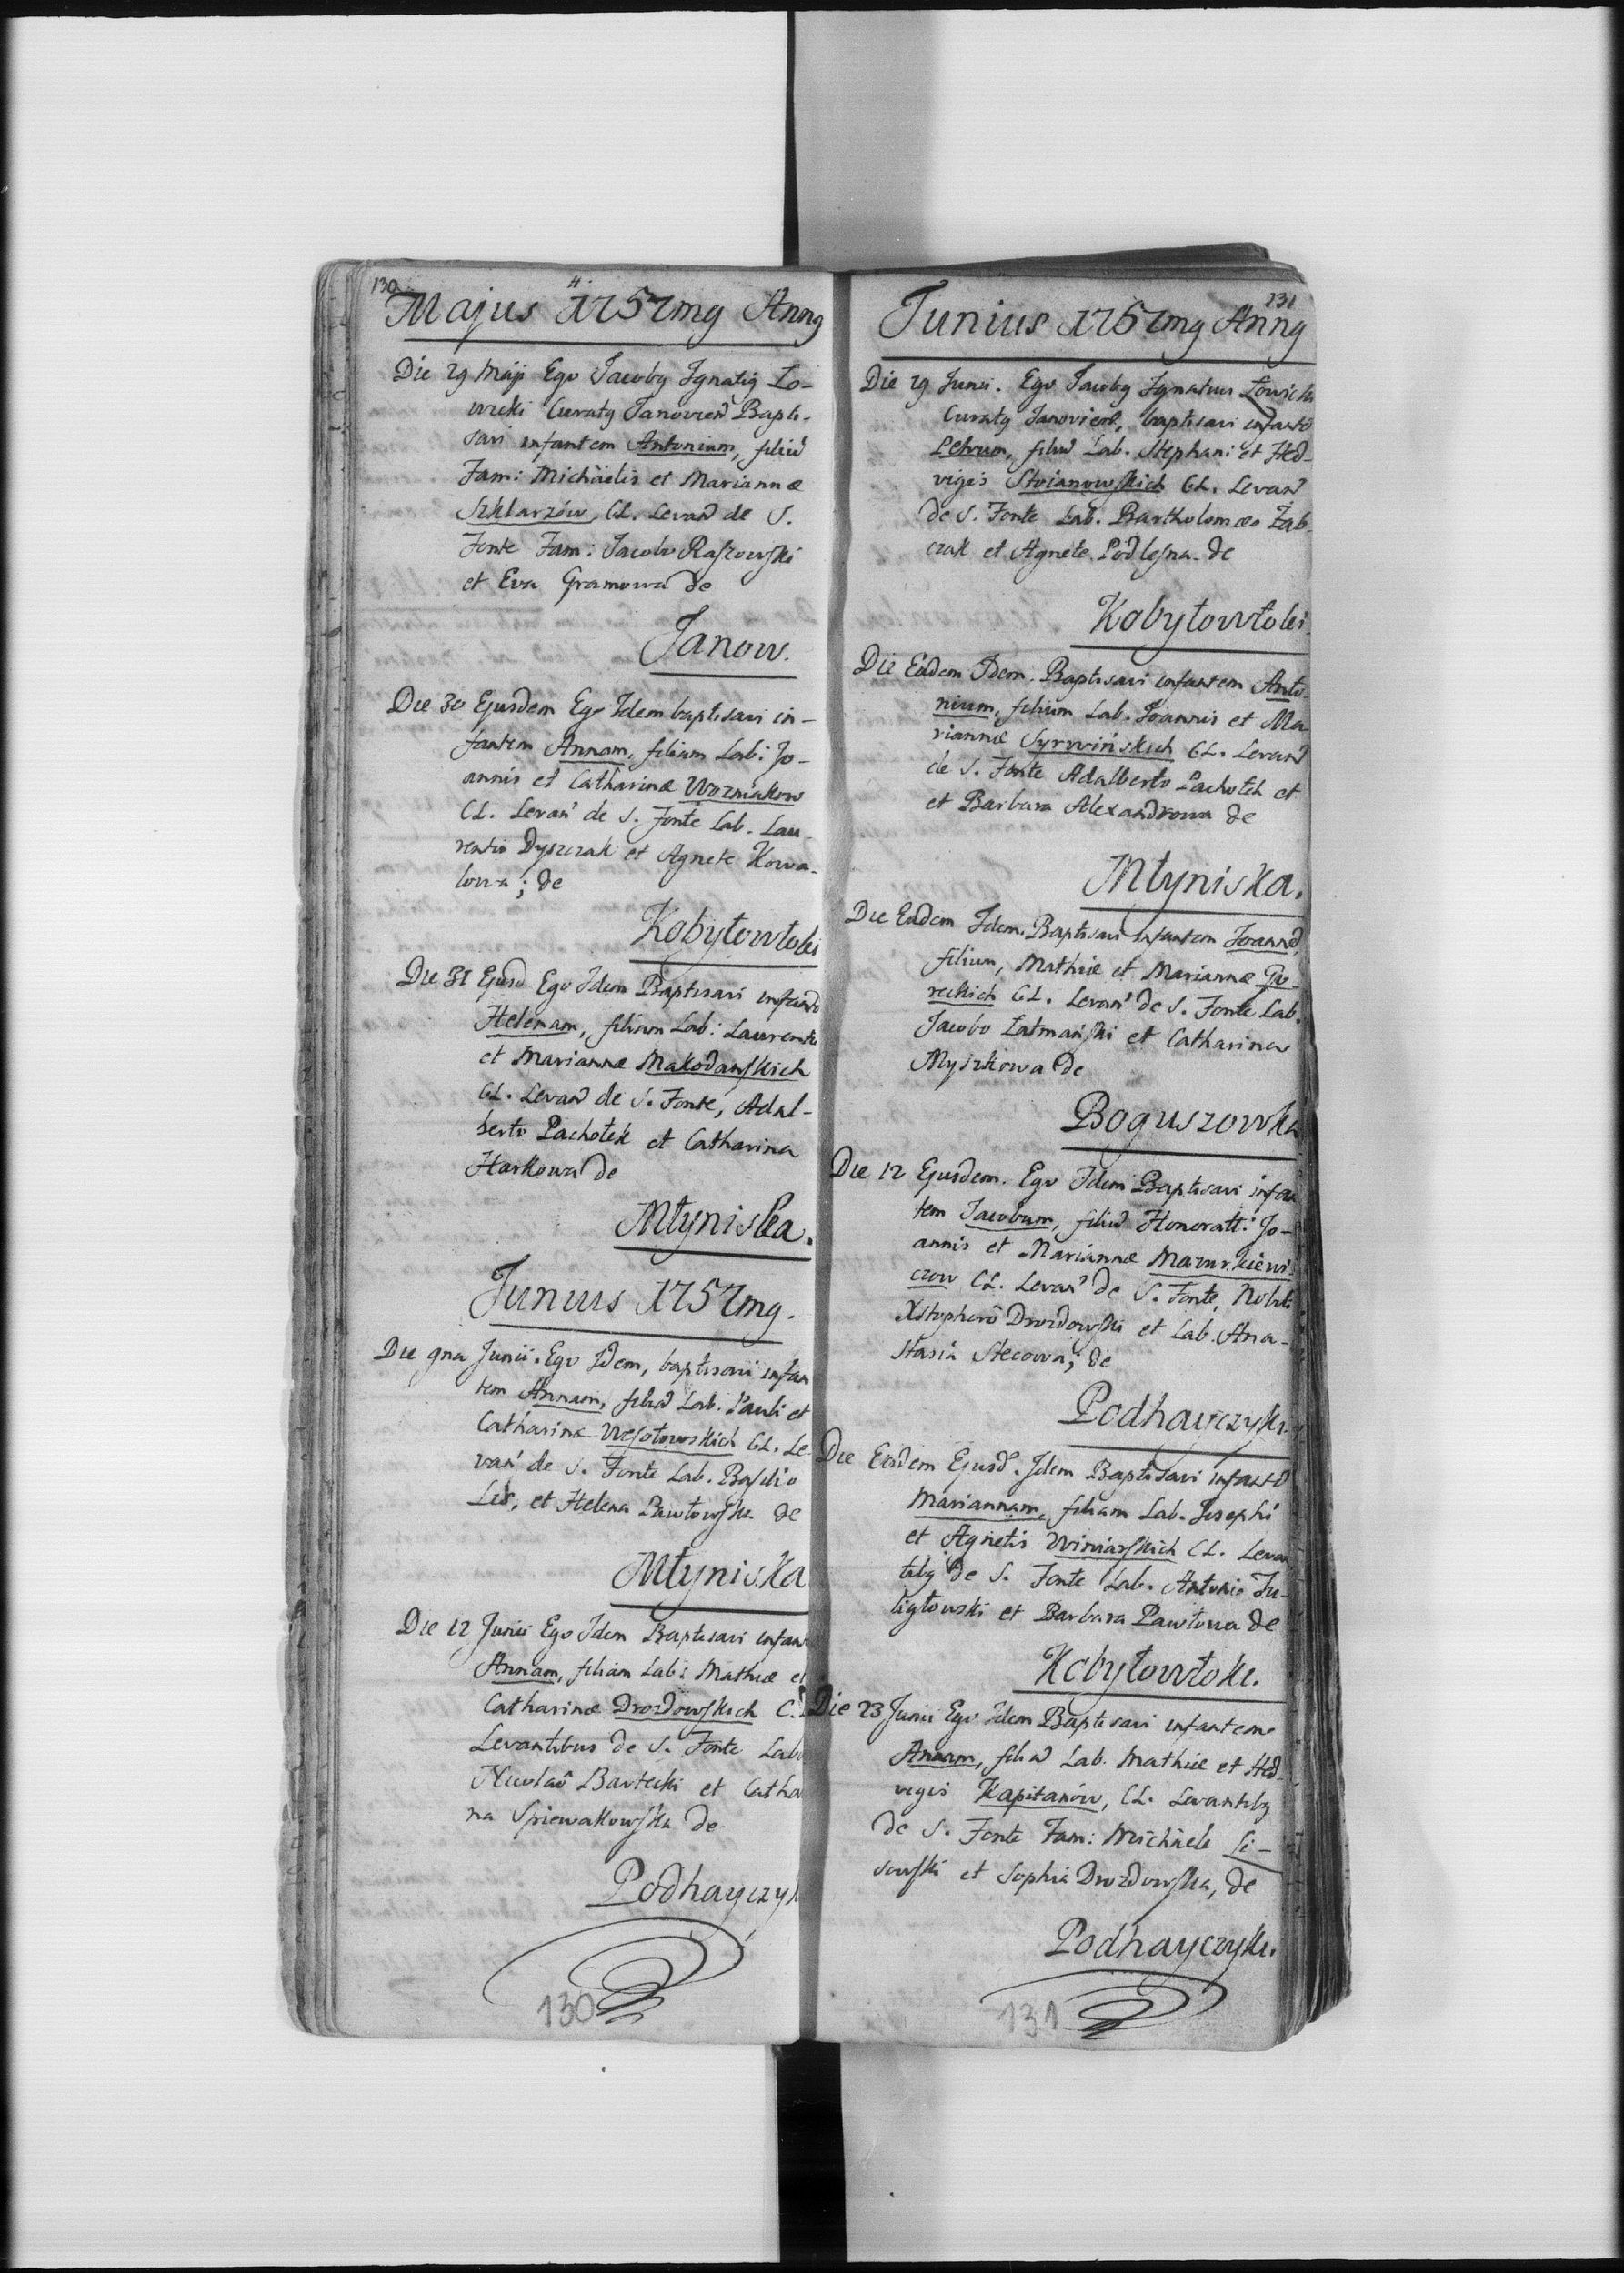 130
Majus 1757mg Anng
Die 29 Maji Ego Jacobg Ignatig Ło-
wicki Curatg Janovien Bapti-
savi infantem Antonium, filiū
Fam: Michäelis et Mariannæ
Szklarzów, CL. Levan de S.
Fonte Fam: Jacobo Raszowski
et Eva Gramowa de
Janow.
Die 30 Ejusdem Ego Idem baptisavi in-
fantem Annam, filiam Lab: Jo-
annis et Catharinæ Wozniakow
CL. Levan de S. Fonte Lab. Lau-
rentio Dyszczak et Agnete Kowa-
lowa; de
Kobyłowłoki
Die 31 Ejusd Ego Idem Baptisavi infantē
Helenam, filiam Lab: Laurentii
et Mariannæ Makodanskich
CL. Levan de S. Fonte, Adal-
berto Pachołek et Catharina
Harkowa de
Młyniska.
Junius 1757mg.
Die 9na Junii. Ego Idem, baptisavi infan
tem Annam, filiā Lab. Pauli et
Catharinæ Wesołowskich CL. Le-
van de S. Fonte Lab. Basilio
Lis, et Helena Pawłowska de
Młyniska
Die 12 Junii Ego Idem Baptisavi infan
Annam, filiam Lab: Mathiæ et
Catharinæ Drozdowskich C.L
Levantibus de S. Fonte Lab
Nicolaô Bartecki et Catha
na Spiewakowska de
Podhayczyk
130
131
Junius 1757mg Anng
Die 29 Junii. Ego Jacobg Ignatius Łowicki
Curatg Janovien, baptisavi infantē
Petrum, filiū Lab. Stephani et Hed-
vigis Stoianowskich CL. Levan
de S. Fonte Lab. Bartholomæo Żab-
czak et Agnete Podlesna de
Kobyłowłoki.
Die Eâdem Idem. Baptisavi infantem Anto-
nium, filium Lab. Joannis et Ma
riannæ Syrwińskich CL. Levan
de S. Fonte Adalberto Pachołek et
et Barbara Alexandrowa de
Młyniska.
Die Eâdem Idem. Baptisavi infantem Joannē,
filium, Mathiæ et Mariannæ Gu-
reckich CL. Levan de S. Fonte Lab.
Jacobo Łatmański et Catharina
Myszkowa de
Boguszowka
Die 12 Ejusdem. Ego Idem Baptisavi infan
tem Jacobum, filiū Honoratt: Jo-
annis et Mariannæ Mazurkiewi-
czow CL. Levan de S. Fonte, Nobili
Xstopherô Drozdowski et Lab. Ana-
stasia Stecowa; de
Podhayczyki.
Die Eâdem Ejusd. Idem Baptisavi infantē
Mariannam, filiam Lab. Josephi
et Agnetis Winiarskich CL. Levan
tibg de S. Fonte Lab. Antonio Tu-
ligłowski et Barbara Pawłowa de
Kobyłowłoki.
Die 23 Junii Ego Idem Baptisavi infantem
Annam, filiā Lab. Mathiæ et Hed-
vigis Kapitanów, CL. Levantibg
de S. Fonte Fam: Michäele Li-
sowski et Sophia Drozdowska, de
Podhayczyki.
131